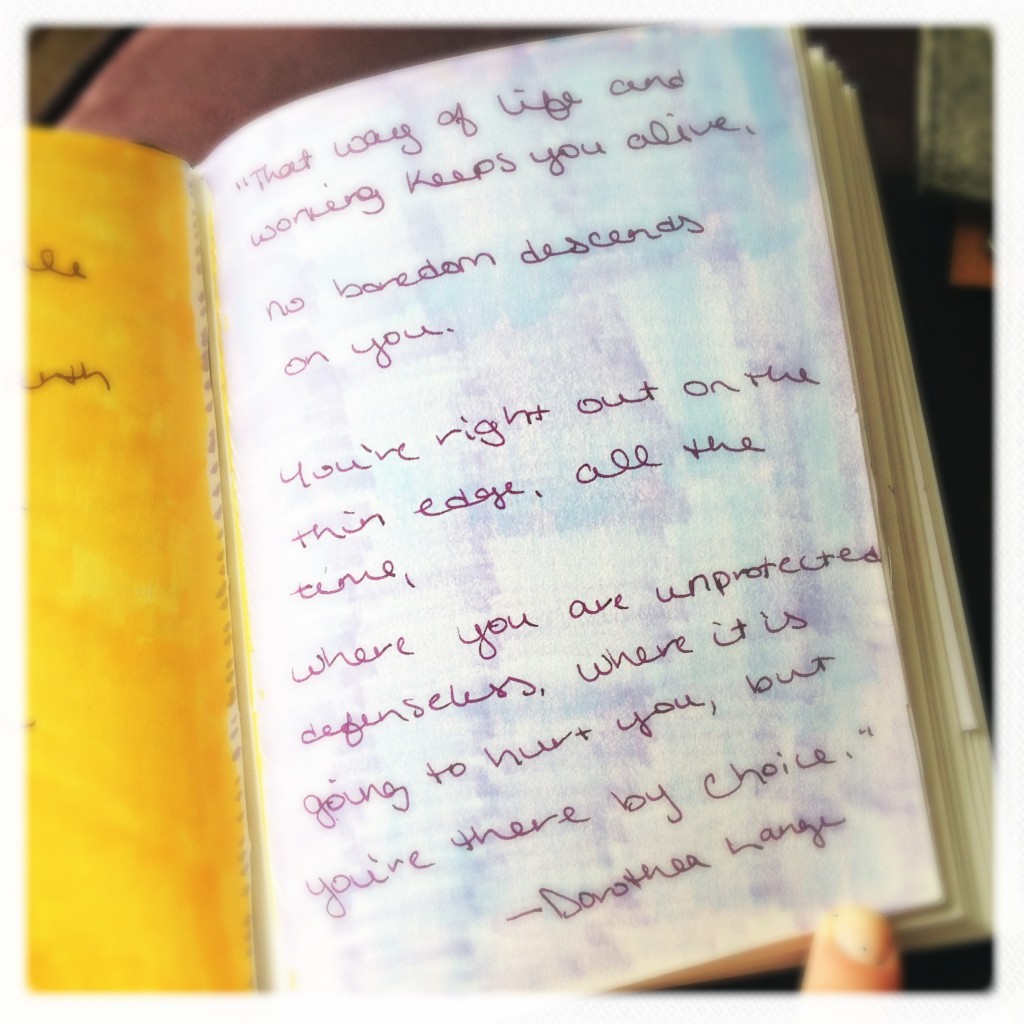 "That way of life and
working keeps you alive,
no boredom descends
on you.
You're right out on the
thin edge, all the
time,
where you are unprotected
defenseless, where it is
going to hurt you, but
you're there by choice."
—Dorothea Lange